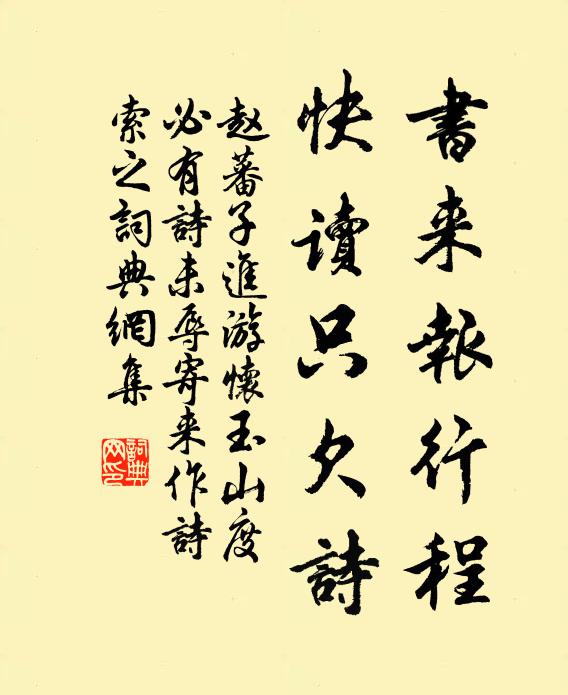 書来報行程
快讀只欠詩
赵蕃子進游懷玉山度
必有詩未辱寄来作詩
索之詞典網集
詞典網印